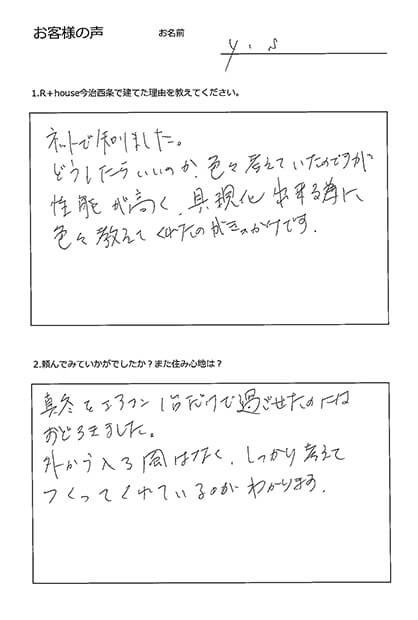 お客様の声
お名前
y.s
1.R+house今治西条で建てた理由を教えてください。
ネットで知りました。
どうしたらいいのか、色々考えていたのですが
性能が高く、具現化出来る為に、
色々教えてくれたのがきっかけです.
2.頼んでみていかがでしたか？また住み心地は？
真冬をエアコン1台だけで過ごせたのには
おどろきました。
外から入る風はなく、しっかり考えて
つくってくれているのがわかります.